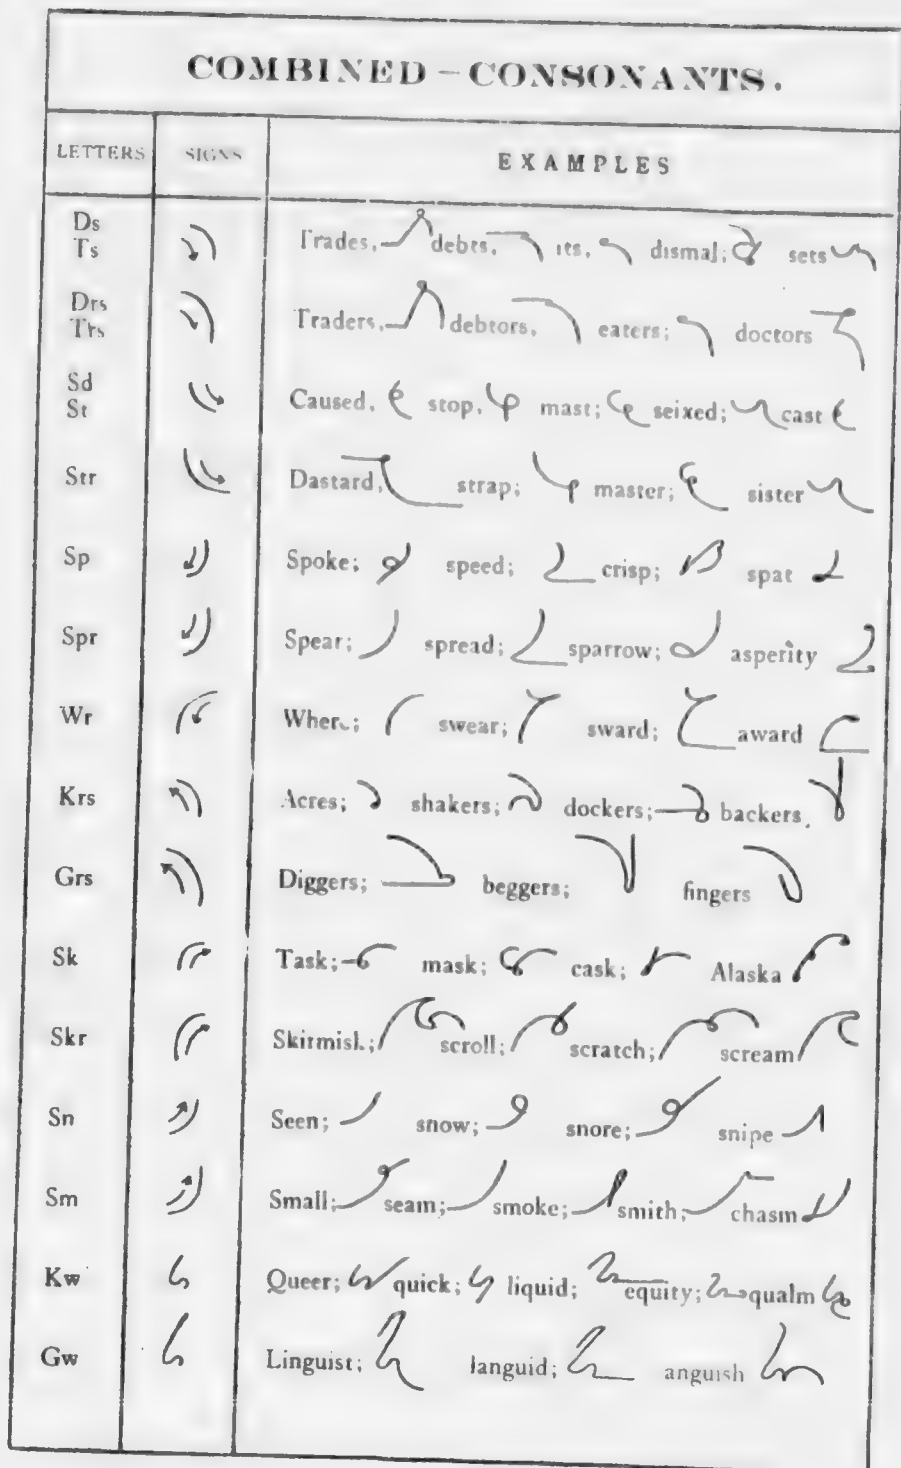 COMBINED-CONSONANTS.
LETTERS SIGNS EXAMPLES
Ds
Ts Trades, debts, its, dismal; sets
Drs
Trs Traders, debtors, eaters; doctors
Sd
St Caused, stop, mast; seixed; cast
Str Dastard, strap; master; sister
Sp Spoke; speed; crisp; spat
Spr Spear; spread; sparrow; asperity
Wr Wher.; swear; sward; award
Krs Acres; shakers; dockers; backers,
Grs Diggers; beggers; fingers
Sk Task; mask; cask; Alaska
Skr Skirmish; scroll; scratch; scream
Sn Seen; snow; snore; snipe
Sm Small; seam; smoke; smith; chasm
Kw Queer; quick; liquid; equity; qualm
Gw Linguist; languid; anguish